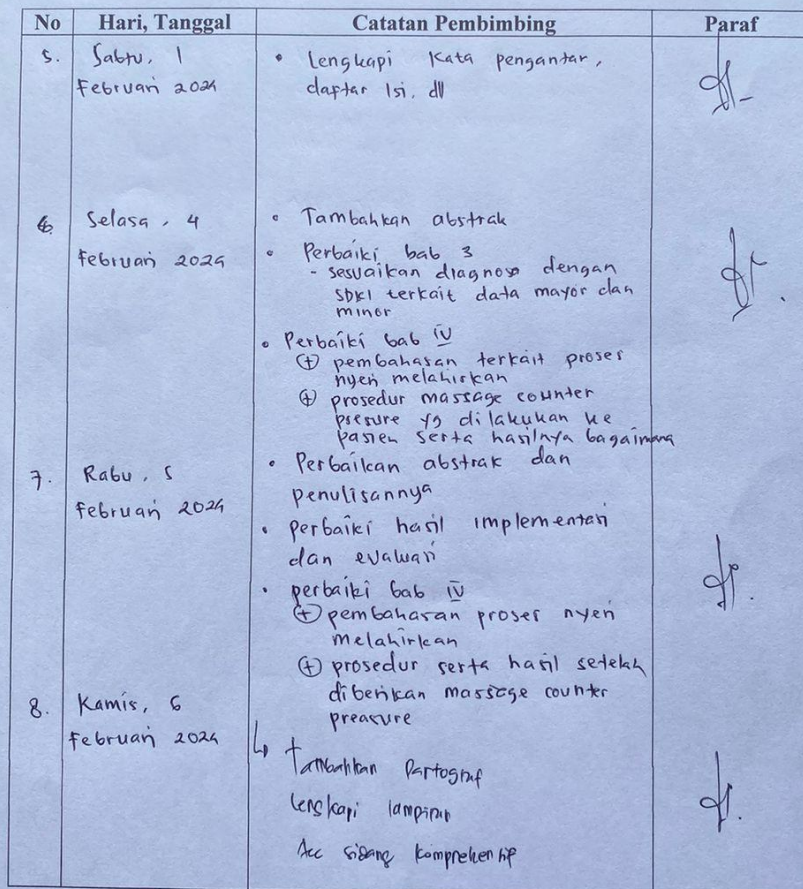 No Hari, Tanggal Catatan Pembimbing Paraf
5. Sabtu, 1 • Lengkapi Kata pengantar,
Februari 2024 daftar Isi, dll
6. Selasa, 4 • Tambahkan abstrak
Februari 2024 • Perbaiki bab 3
- sesuaikan diagnosa dengan
SDKI terkait data mayor dan
minor
• Perbaiki bab IV
+ pembahasan terkait proses
nyeri melahirkan
+ prosedur massage counter
presure yg dilakukan ke
pasien serta hasilnya bagaimana
7. Rabu, 5 • Perbaikan abstrak dan
Februari 2024 penulisannya
• perbaiki hasil implementasi
dan evaluasi
• perbaiki bab IV
+ pembahasan proses nyeri
melahirkan
+ prosedur serta hasil setelah
diberikan massage counter
8. Kamis, 6 preasure
Februari 2024 ↳ + Tambahkan Partograf
lengkapi lampiran
Acc sidang komprehensif